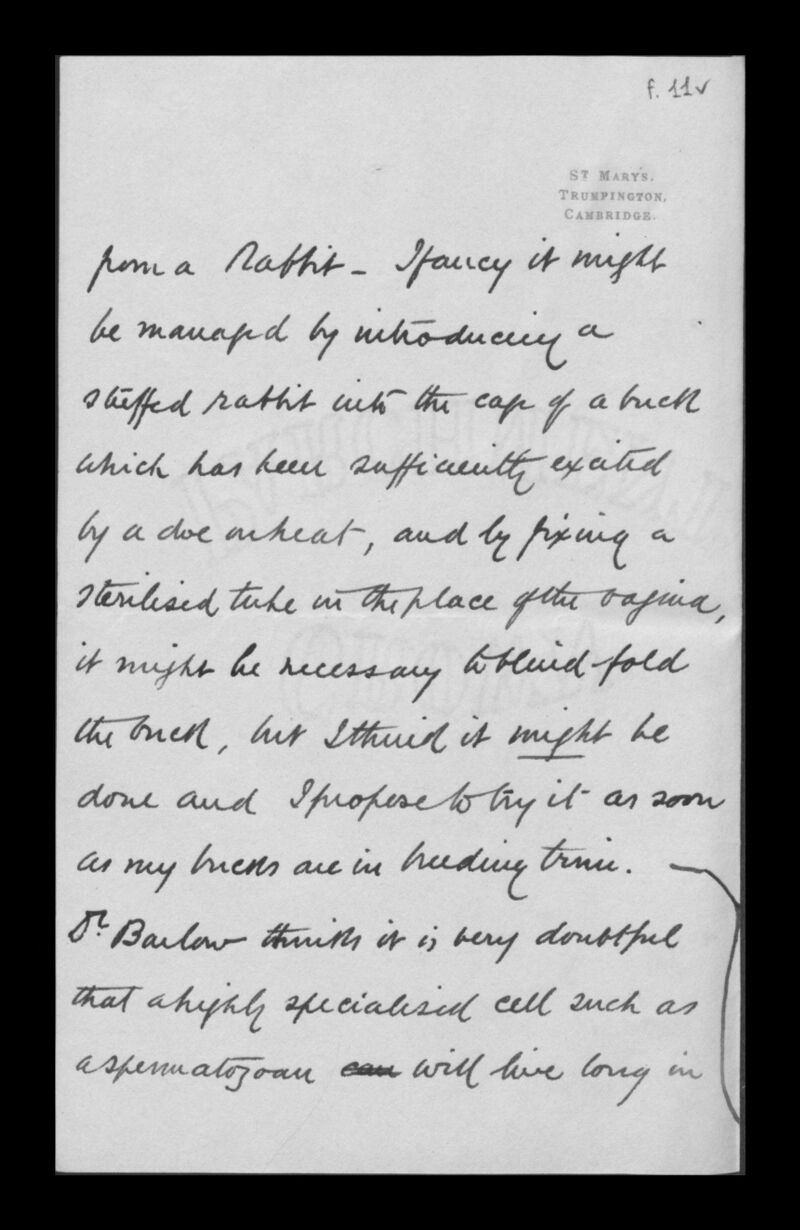 f. 11v
ST MARY'S.
TRUMPINGTON,
CAMBRIDGE.
from a Rabbit - I fancy it might
be managed by introducing a
stuffed rabbit into the cage of a buck
which has been sufficiently excited
by a doe on heat, and by fixing a
sterilised tube in the place of the vagina,
it might be necessary to blind-fold
the buck, but I think it might be
done and I propose to try it as soon
as my bucks are in breeding trim. —
Dr. Barlow thinks it is very doubtful
that a highly specialised cell such as
a spermatozoan can will live long in